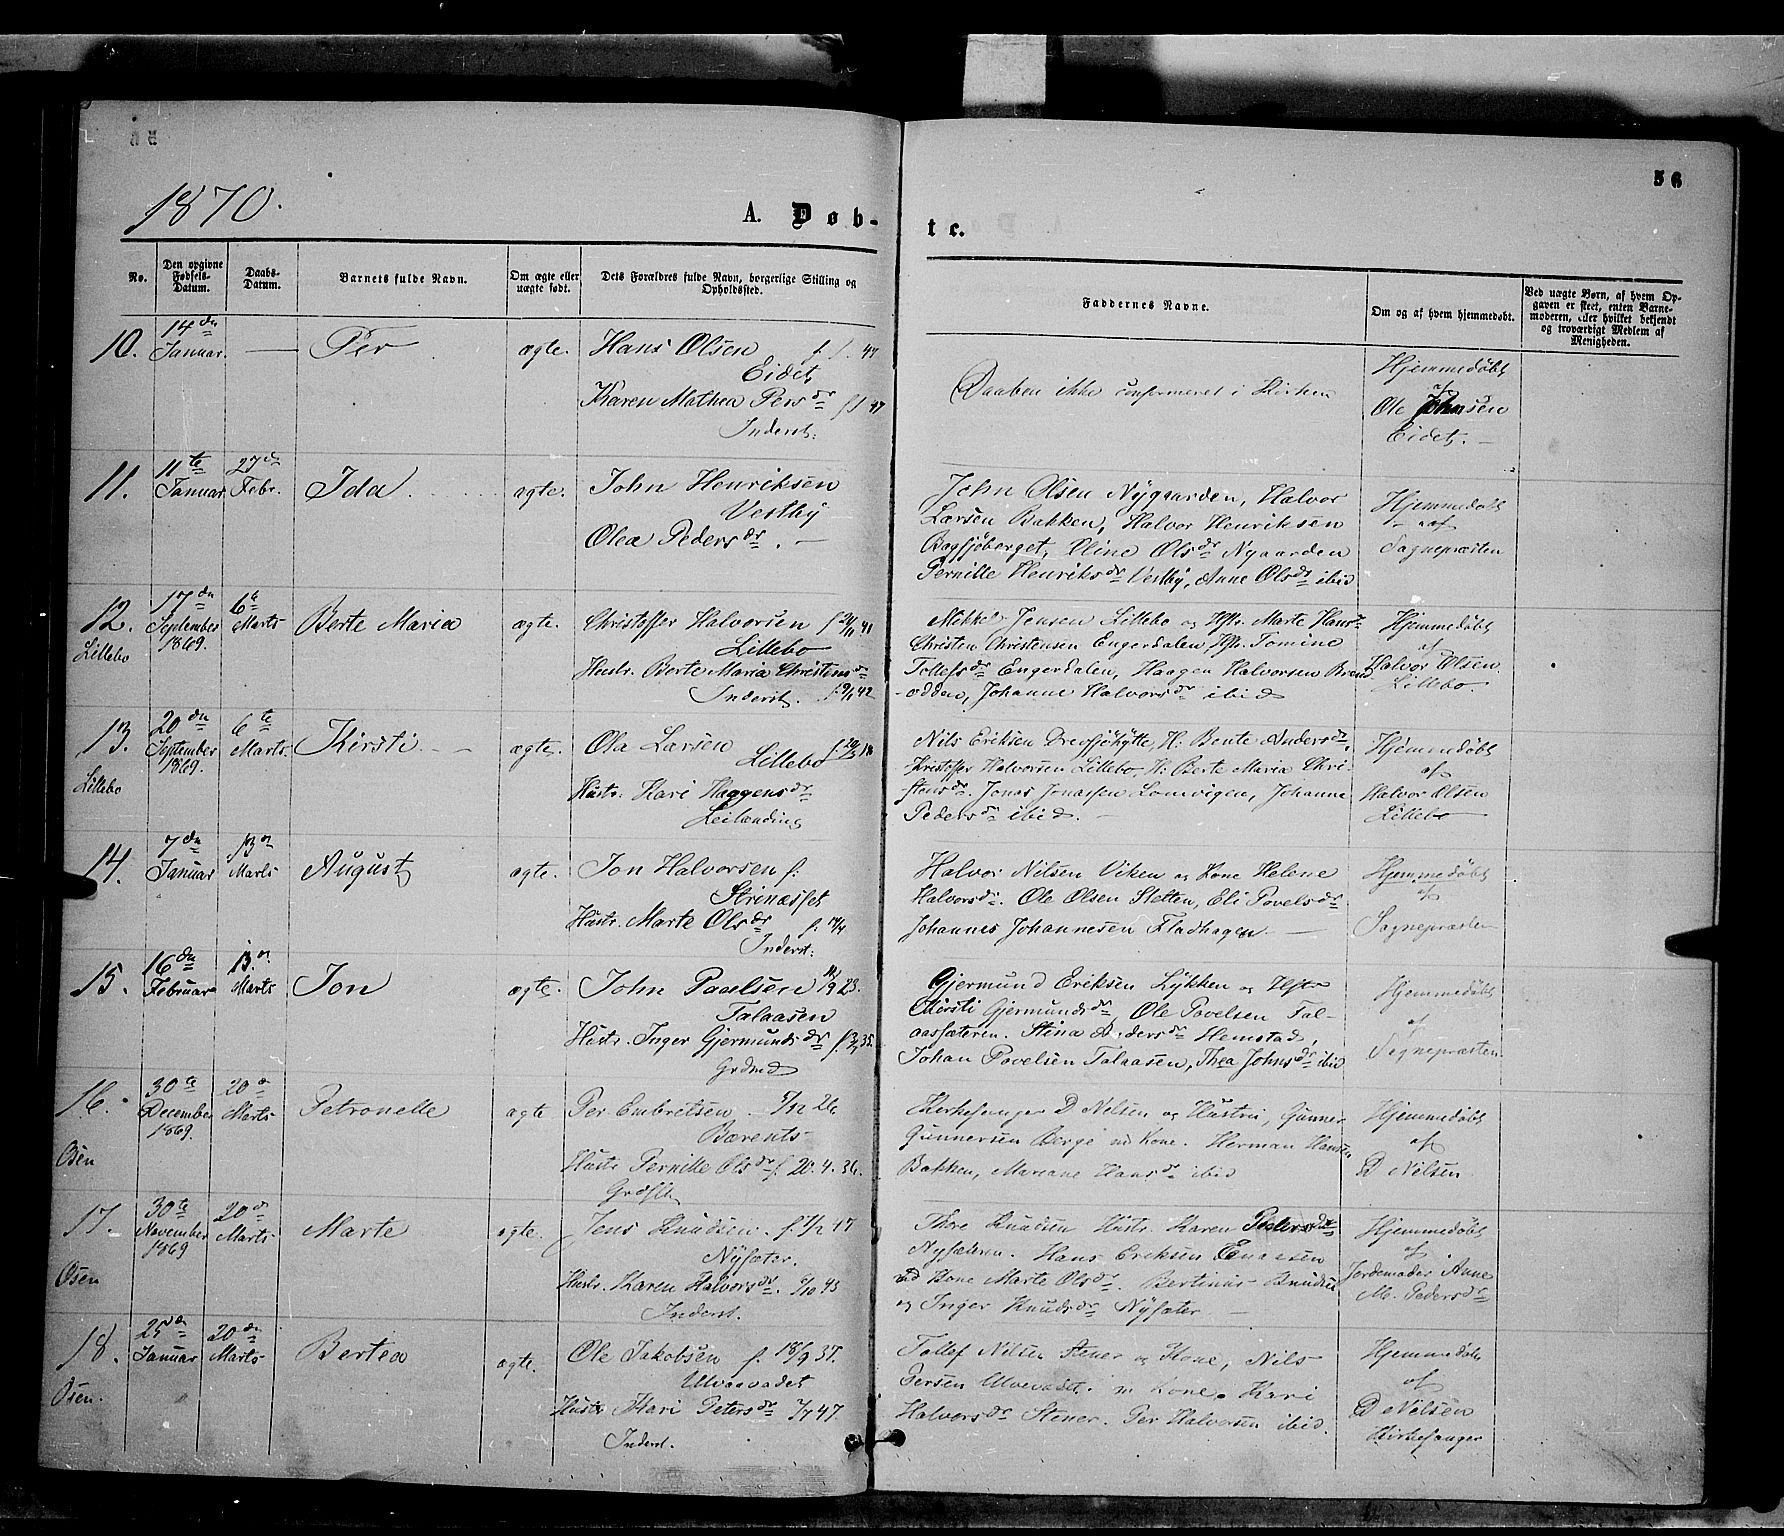 56
1870.
A. Døb-
te.
No.
Den opgivne Fødsels-Datum.
Daabs-Datum.
Barnets fulde Navn.
Om ægte eller uægte født.
Dets Forældres fulde Navn, borgerlige Stilling og Opholdssted.
Faddernes Navne.
Om og af hvem hjemmedøbt.
Ved uægte Børn, af hvem Op-
gaven er skeet, enten Barne-
moderen, eller hvilket bekjendt
og troværdigt Medlem af
Menigheden.
10. 14de Januar. — Per ægte.
Hans Olsen
Eidet
Karen Mathea Persdr
Inderst.
Daaben ikke conformeret i Kirken
Hjemmedøbt
af
Ole Johnsen
Eidet. —
11. 11te Januar 27de Febr. Ida ægte.
John Henriksen
Vestby
Olea Pedersdr. —
John Olsen Nygaarden, Halvor
Larsen Bakken, Halvor Henriksen
Bagsjøberget, Oline Olsdr Nygaarden
Pernille Henriksdr Vestby, Anne Olsdr ibid
Hjemmedøbt
af
Sognepræsten
12. Lillebo 17de September 1869. 6te Marts Berte Maria ægte.
Christoffer Halvorsen
Lillebo
Hustr. Berte Maria Christensdr
Inderst.
Mikkel Jensen Lillebo og Hstr. Marte Hansdr
Christen Christensen Engerdalen, Hstr. Tomine
Tollefsdr Engerdalen, Haagen Halvorsen Brend
odden, Johanne Halvorsdr ibid
Hjemmedøbt
af
Halvor Olsen
Lillebo.
13. Lillebo 20de September 1869. 6te Marts. Kirsti ægte.
Ola Larsen
Lillebo
Hustr. Kari Haagensdr
Leilænding
Nils Eriksen Drevsjøhytte, H: Bente Andersdr,
Kristoffer Halvorsen Lillebo, H: Berte Maria Chri-
stensdr. Jonas Jonassen Lomvigen, Johanne
Pedersdr ibid. —
Hjemmedøbt
af
Halvor Olsen
Lillebo
14. 7de Januar 13de Marts August ægte.
Jon Halvorsen f.
Strinæsset
Hustr. Marte Olsdr
Inderst.
Halvor Nilsen Viken og Kone Helene
Halvorsdr. Ole Olsen Sletten, Eli Povelsdr
Johannes Johannesen Fladhagen —
Hjemmedøbt
af
Sognepræsten
15. 16de Februar 13de Marts Jon ægte.
John Paalsen
Talaasen
Hustr. Inger Gjermundsdr
Grdmd
Gjermund Eriksen Lykken og Hstr
Kirsti Gjermundsdr, Ole Povelsen Tal-
aassæteren. Stina Andersdr Hemstad,
Johan Povelsen Talaasen, Thea Johnsdr ibid
Hjemmedøbt
af
Sognepræsten
16. Osen 30te December 1869. 20de Marts Petronelle ægte
Per Embretsen
Bærents-
Hustr Pernille Olsdr f. 20.4.36.
Kirkesanger D Nelsen og Hustru, Gunner
Gunnersen Berge m Kone. Herman Hansen
Bakken, Mariane Hansdr ibid
Hjemmedøbt
af
D Nelsen
17. Osen 30te November 1869 20de Marts Marte ægte.
Jens Knudsen.
Nysæter.
Hustr. Karen Halvorsdr.
Inderst.
Thore Knudsen Hustr. Karen Pedersdr
Nysæteren. Hans Eriksen Enaasen
md Kone Marte Olsdr. Bertinus Knudsen
og Inger Knudsdr Nysæter —
Hjemmedøbt
af
Jordemoder Anne
M. Pedersdr
18. Osen. 25de Januar 20de Marts Bertea ægte.
Ole Jakobsen f. 18/9 37.
Ulvaavadet
Hustr Kari Petersdr
Inderst.
Tollef Nilsen Stener og Kone, Nils
Persen Ulvevadet m Kone. Kari
Halvorsdr Stener. Per Halvorsen ibid.
Hjemmedøbt
af
D Nelsen
Kirkesanger